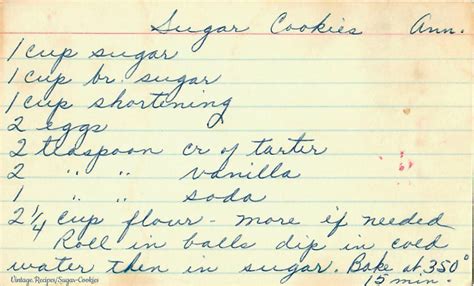 Sugar Cookies Ann.
1 cup sugar
1 cup br. sugar
1 cup shortening
2 eggs
2 teaspoon cr of tarter
2 " " vanilla
1 " " soda
2 1/4 cup flour - more if needed
Roll in balls dip in cold
water then in sugar. Bake at 350°
15 min.
Vintage.Recipes/Sugar-Cookies